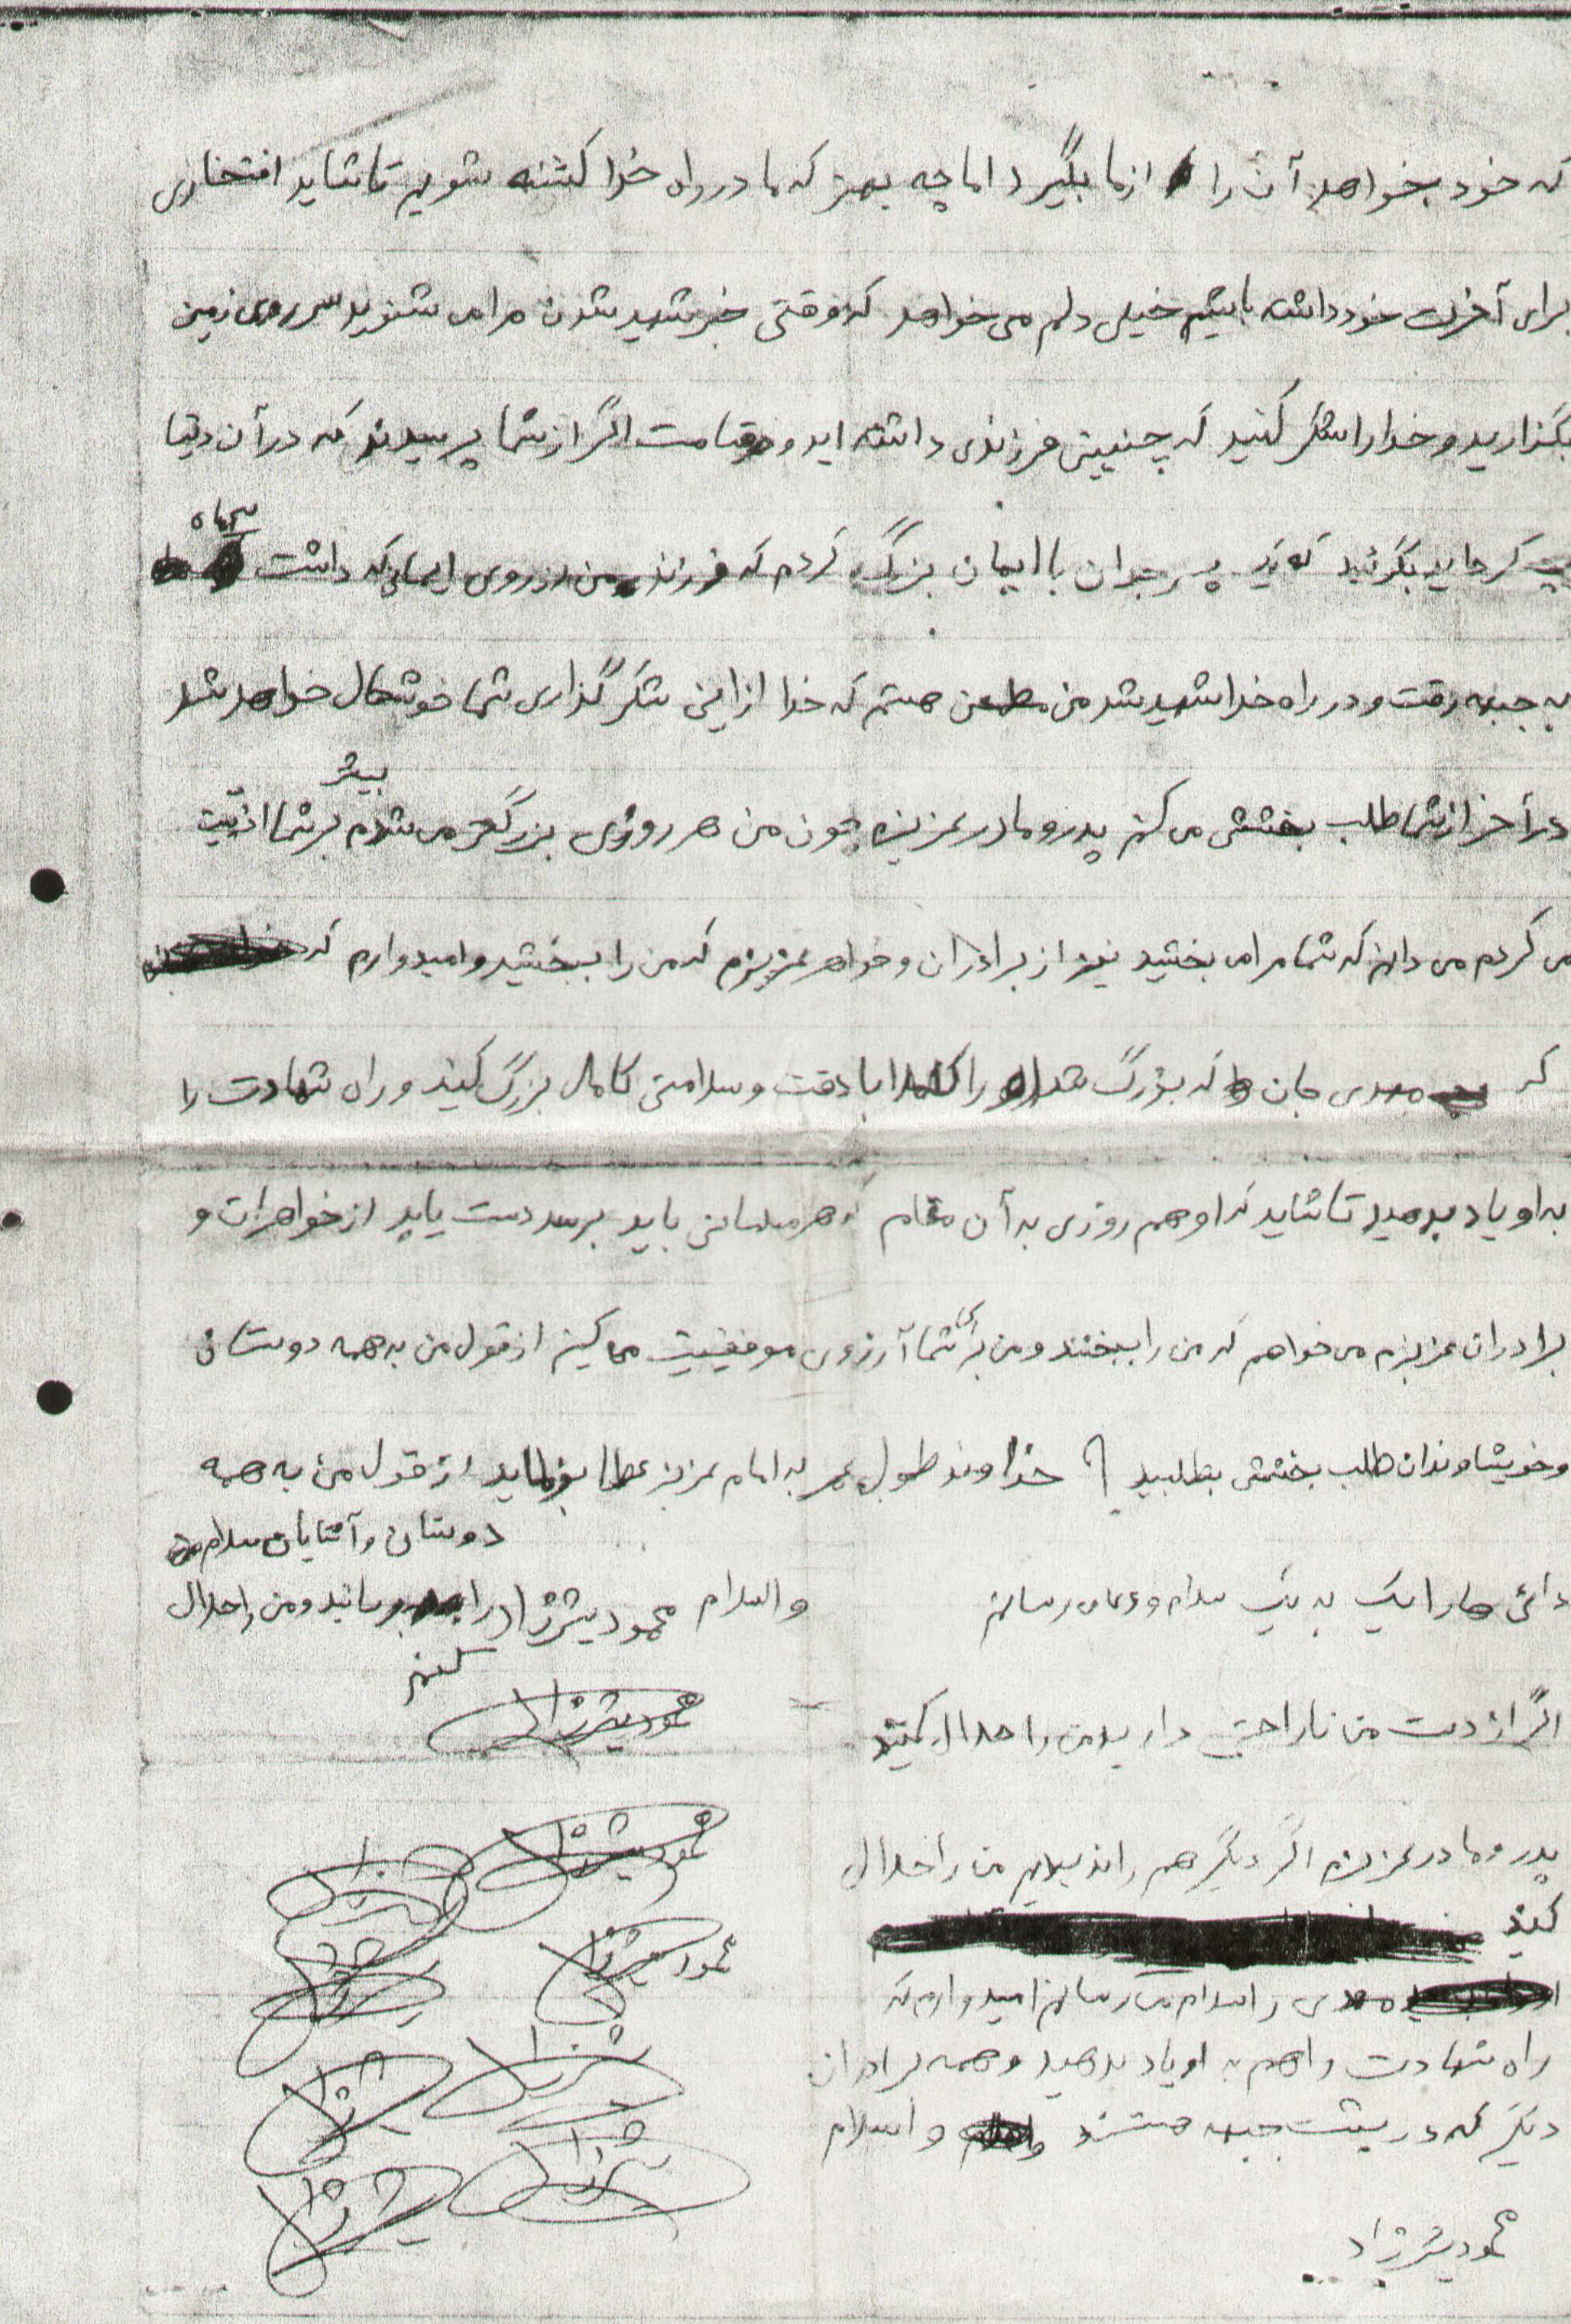 که خود بخواهد آن را از ما بگیرد اما چه بهتر که ما در راه خدا کشته شویم تا شاید افتخاری
برای آخرت خود داشته باشیم خیلی دلم می خواهد که وقتی خبر شهید شدن مرا می شنوید سر روی زمین
بگذارید و خدا را شکر کنید که چنین فرزندی داشته اید و در قیامت اگر از شما پرسیدند که در آن دنیا
چه کرده اید بگوئید که یک پسر جوان با ایمان بزرگ کردم که فرزند من از روی ایمانی که داشت
به جبهه رفت و در راه خدا شهید شد من مطمئن هستم که خدا از این شکر گذاری شما خوشحال خواهد شد
در آخر از شما طلب بخشش می کنم پدر و مادر عزیزم چون من هر روزی بزرگتر می شدم بیشتر بر شما اذیت
می کردم می دانم که شما مرا می بخشید نیز از برادران و خواهر عزیزم که من را ببخشید و امیدوارم که
که مهدی جان که بزرگ شد او را کاملا با دقت و سلامتی کامل بزرگ کنید و راه شهادت را
به او یاد بدهید تا شاید که او هم روزی به آن مقام که هر مسلمانی باید برسد دست یابد از خواهرات و
برادران عزیزم می خواهم که من را ببخشند و من برای شما آرزوی موفقیت می کنم از قول من به همه دوستان
و خویشاوندان طلب بخشش بطلبید خداوند طول عمر به امام عزیز عطا بفرماید از قول من به همه
دوستان و آشنایان سلام
دائی ها را یک به یک سلام و دعا می رسانم والسلام محمود بشرنژاد را برسانید و من را حلال
کنید
محمود بشرنژاد
اگر از دست من ناراحتی دارید من را حلال کنید
پدر و مادر عزیزم اگر دیگر هم را ندیدیم من را حلال
کنید
مهدی را سلام می رسانم امیدوارم که
راه شهادت را هم به او یاد بدهید و همه برادران
دیگر که در پشت جبهه هستند والسلام
محمود بشرنژاد